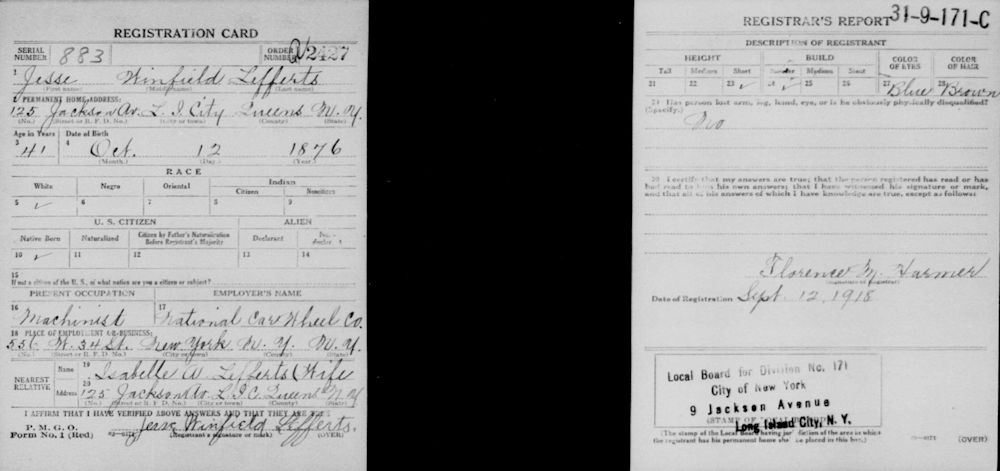 REGISTRATION CARD
SERIAL NUMBER 883 ORDER NUMBER 2427
1 Jesse Winfield Lefferts
(First name) (Middle name) (Last name)
2 PERMANENT HOME ADDRESS:
125 Jackson Av. L. I. City Queens N. Y.
(No.) (Street or R. F. D. No.) (City or town) (County) (State)
Age in Years Date of Birth
3 41 4 Oct. 12 1876
(Month.) (Day.) (Year.)
RACE
White Negro Oriental Indian
Citizen Noncitizen
5 ✓ 6 7 8 9
U. S. CITIZEN ALIEN
Native Born Naturalized Citizen by Father's Naturalization Before Registrant's Majority Declarant
10 ✓ 11 12 13 14
15
If not a citizen of the U. S., of what nation are you a citizen or subject?
PRESENT OCCUPATION EMPLOYER'S NAME
16 Machinist 17 National Car Wheel Co.
18 PLACE OF EMPLOYMENT OR BUSINESS:
556 W. 34 St. New York N. Y. N. Y.
(No.) (Street or R. F. D. No.) (City or town) (County) (State)
NEAREST RELATIVE
Name 19 Isabelle A Lefferts (Wife
Address 20 125 Jackson Av. L. I. C. Queens N. Y.
(No.) (Street or R. F. D. No.) (City or town) (County) (State)
I AFFIRM THAT I HAVE VERIFIED ABOVE ANSWERS AND THAT THEY ARE
P. M. G. O.
Form No. 1 (Red) Jesse Winfield Lefferts.
(Registrant's signature or mark) (OVER)
REGISTRAR'S REPORT 31-9-171-C
DESCRIPTION OF REGISTRANT
HEIGHT BUILD COLOR OF EYES COLOR OF HAIR
Tall Medium Short Slender Medium Stout
21 22 23 ✓ 24 ✓ 25 26 27 Blue 28 Brown
29 Has person lost arm, leg, hand, eye, or is he obviously physically disqualified?
(Specify.) No
30 I certify that my answers are true; that the person registered has read or has
had read to him his own answers; that I have witnessed his signature or mark,
and that all of his answers of which I have knowledge are true, except as follows:
Florence M. Harmer
Date of Registration Sept. 12, 1918
Local Board for Division No. 171
City of New York
9 Jackson Avenue
Long Island City, N. Y.
(The stamp of the Local Board having jurisdiction of the area in which
the registrant has his permanent home shall be placed in this box.)
(OVER)